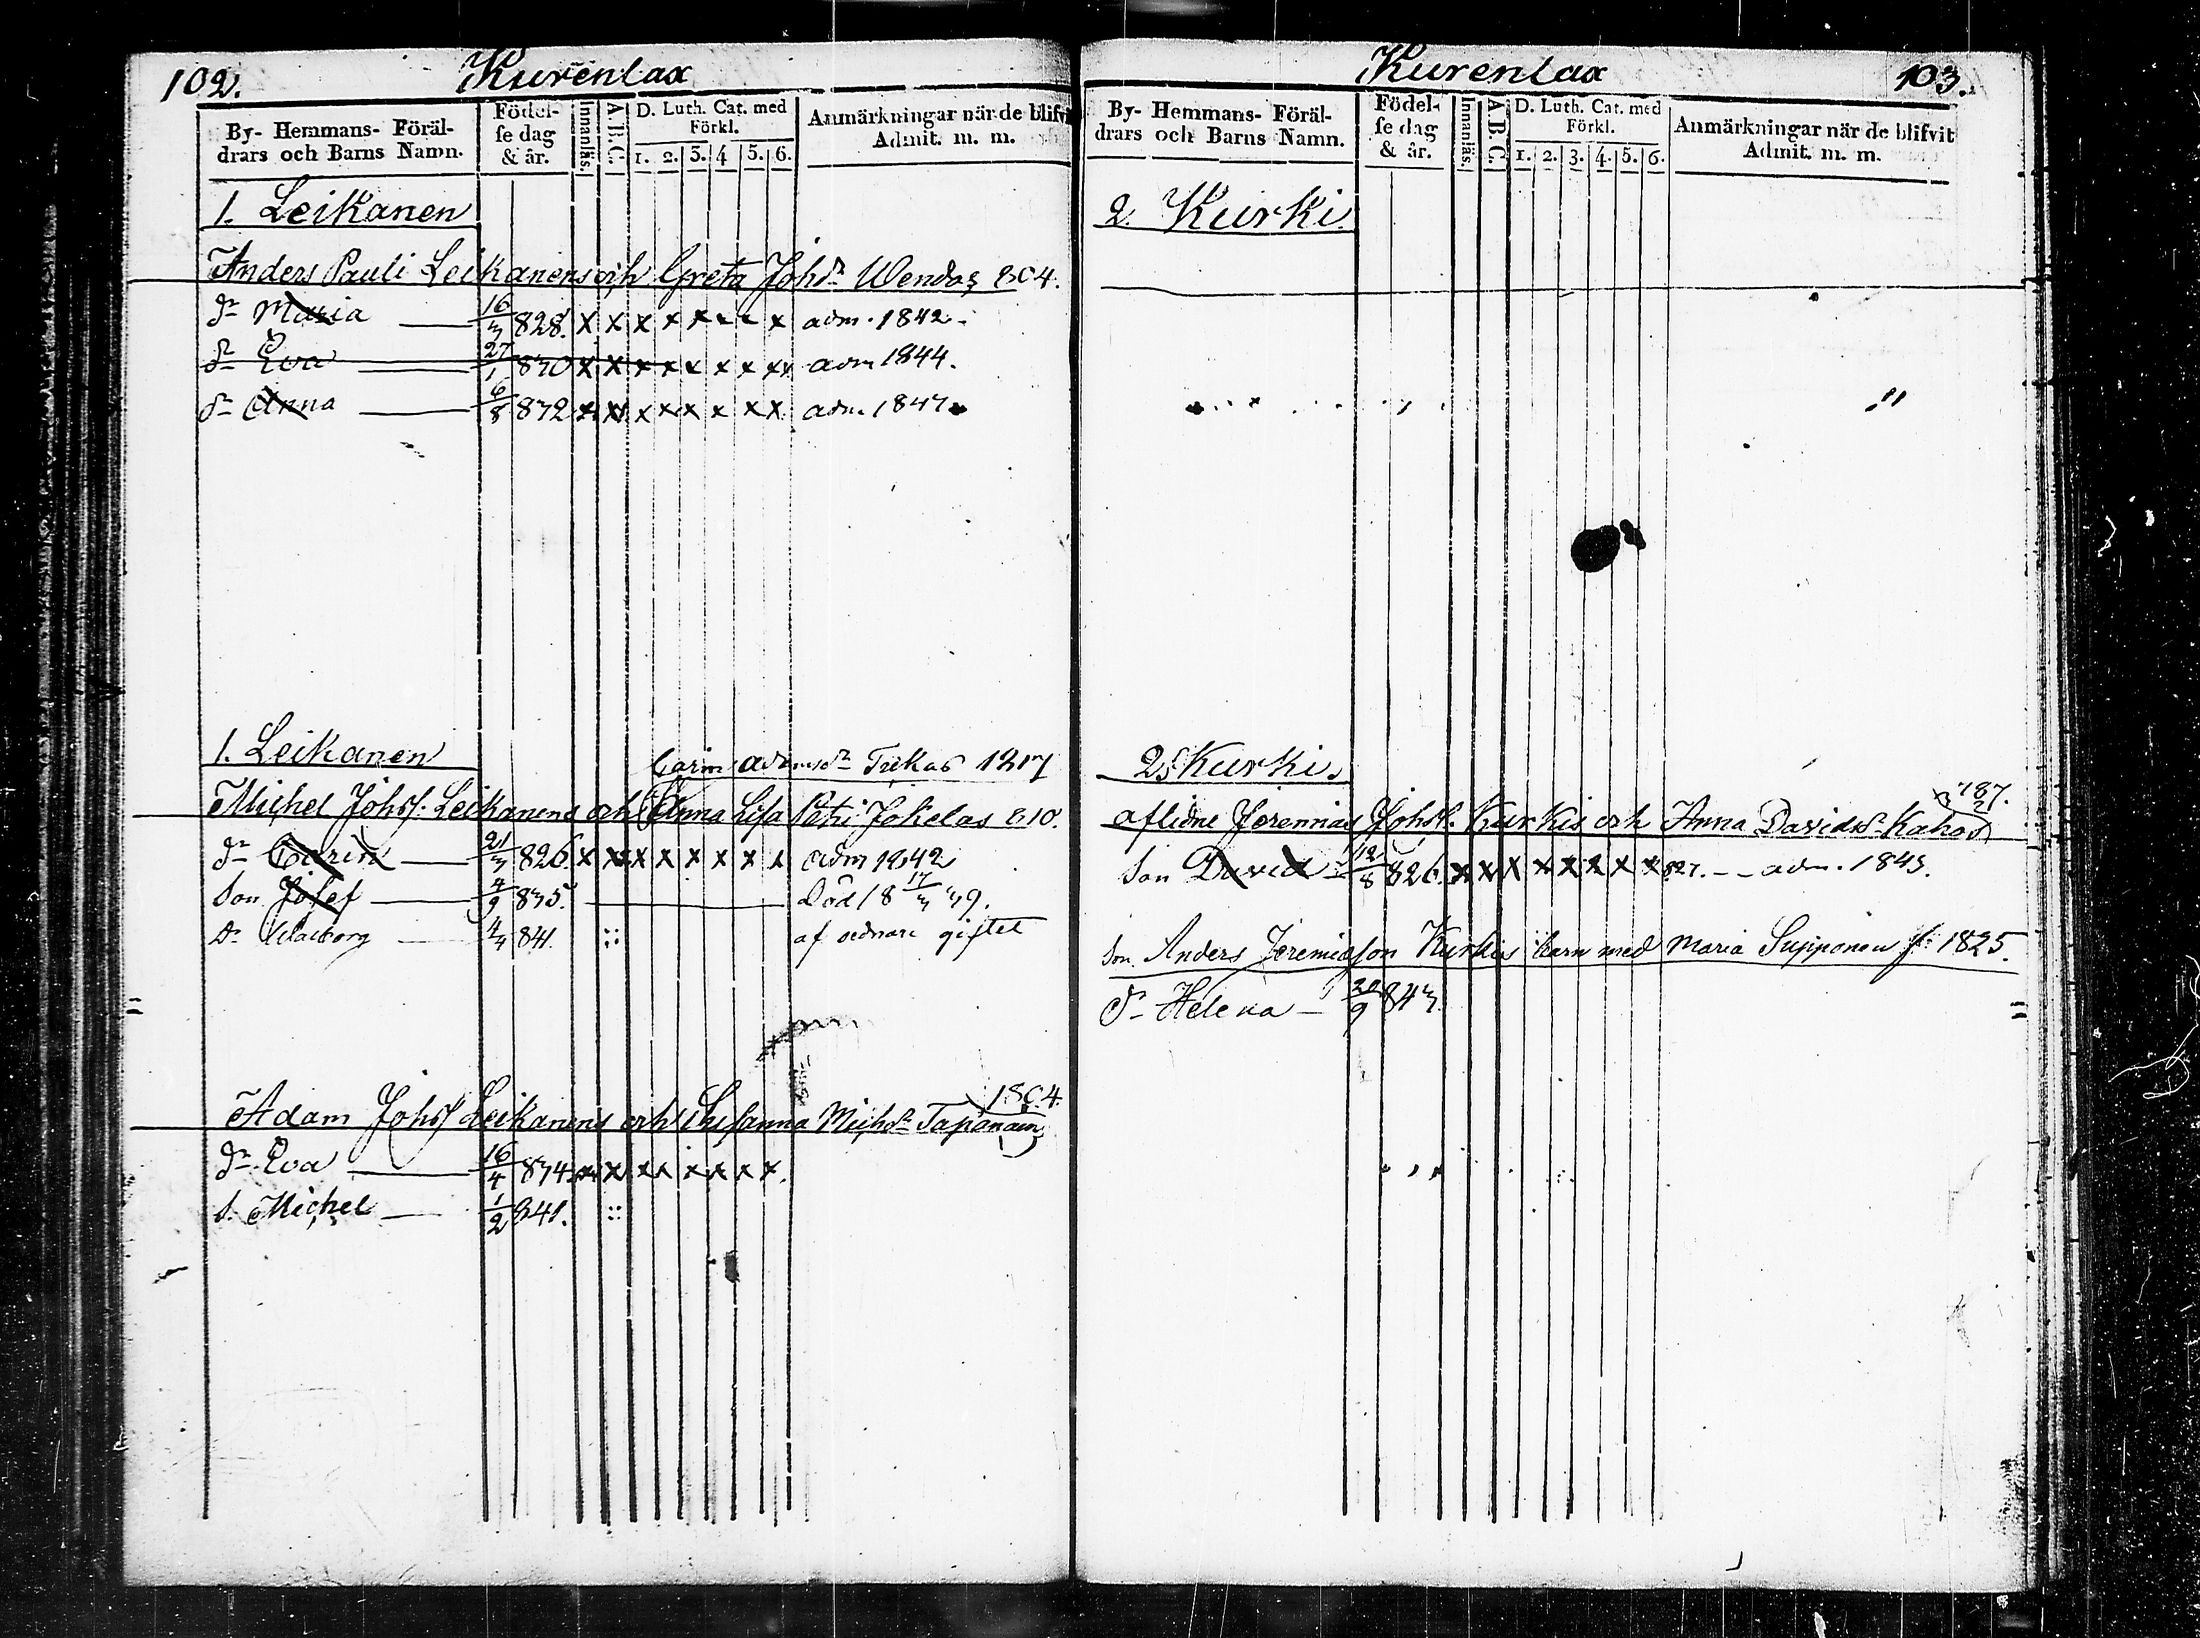 102.
Kurenlax
By- Hemmans- Föräl-
drars och Barns Namn.
Födel-
se dag
& år.
Innanläs.
A.B.C.
D. Luth. Cat. med
Förkl.
1. 2. 3. 4 5. 6.
Anmärkningar när de blifvit
Admit. m. m.
1. Leikanen
Anders Pauli Leikanens och Greta Johdr Wendas 804.
dr Maria 16/3 828. x x x x x x x x adm. 1842
dr Eva 27/1 830 x x x x x x x xx adm 1844.
dr Anna 6/8 832 x x x x x x x x adm. 1847
1. Leikanen
Carin Adamsdr 1817
Michel Johss. Leikanens och Anna Lisa Petri Jokelas 810.
dr Carin 21/3 826 x x x x x x x x adm 1842
Son Josef 4/9 835. Död 18 17/3 39.
Dr Walborg 4/4 841. :: af sednare giftet
Adam Johss Leikanens och Susanna Michdr Taponain 1804.
dr Eva 16/4 834 x x x x x x x x
s. Michel 1/2 841. ::
Kurenlax
103.
By- Hemmans- Föräl-
drars och Barns Namn.
Födel-
se dag
& år.
Innanläs.
A.B.C.
D. Luth. Cat. med
Förkl.
1. 2. 3. 4. 5. 6.
Anmärkningar när de blifvit
Admit. m. m.
2. Kurki.
2. Kurki.
aflidne Jeremias Johss. Kurkis och Anna Davidsdr Kakos 787.
Son David 12/8 826. x x x x x x x x 827. adm. 1843.
Son Anders Jeremiasson Kurkis barn med Maria Supponen f. 1825.
dr Helena 20/9 843.